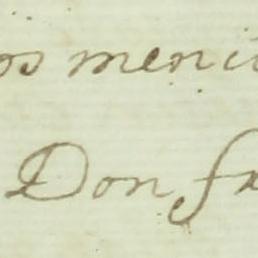 os menci
Don fr